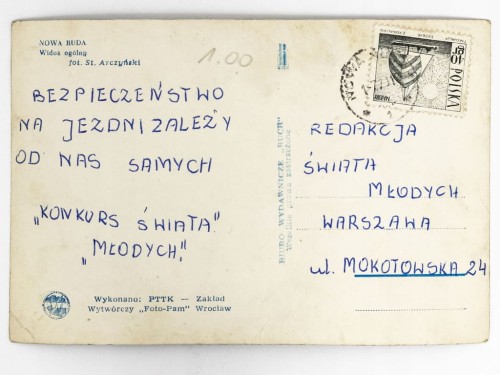 NOWA RUDA
Widok ogólny
fot. St. Arczyński
1.00
BEZPIECZEŃSTWO
NA JEZDNI ZALEŻY
OD NAS SAMYCH
„KONKURS ŚWIATA"
„MŁODYCH"
Wykonano: PTTK — Zakład
Wytwórczy „Foto-Pam" Wrocław
BIURO WYDAWNICZE „RUCH"
Wszelkie prawa zastrzeżone
NOWA
POLSKA
REDAKCJA
ŚWIATA
MŁODYCH
WARSZAWA
ul. MOKOTOWSKA 24